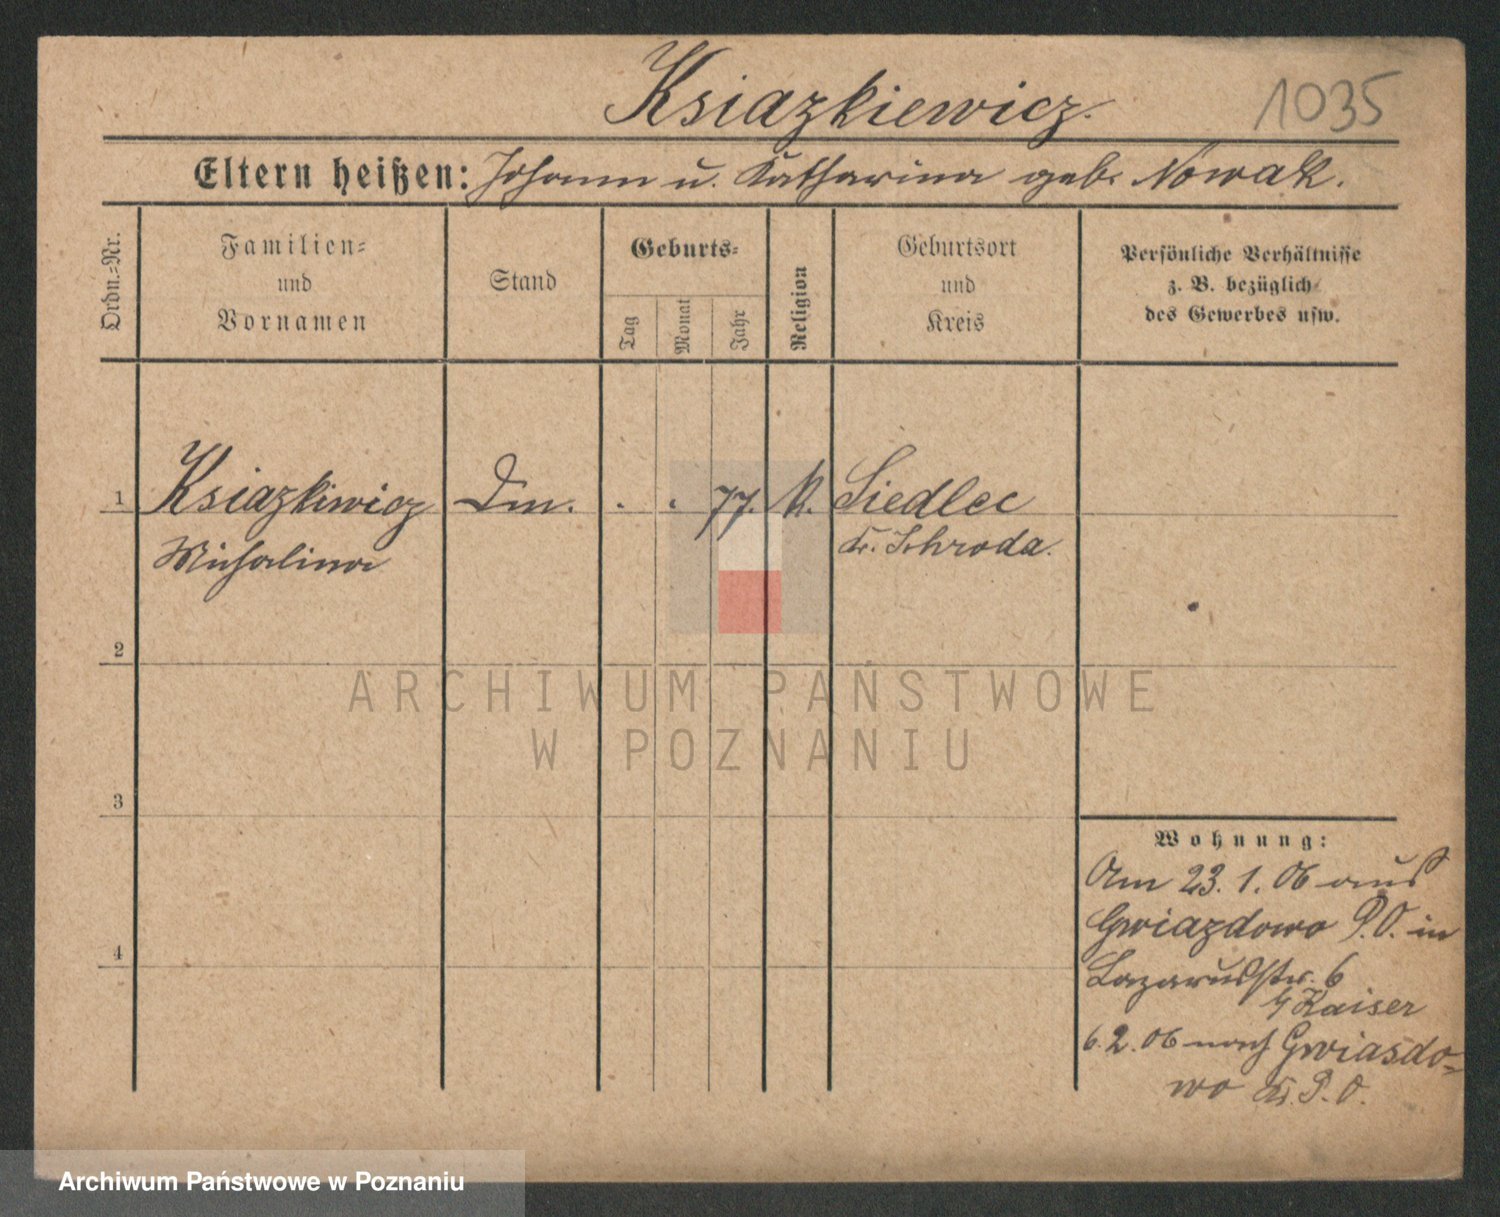 Ksiazkiewicz.
1035
Eltern heißen: Johann u. Katharina geb. Nowak.
Ordn.-Nr.
Familien-
und
Vornamen
Stand
Geburts-
Tag
Monat
Jahr
Religion
Geburtsort
und
Kreis
Persönliche Verhältnisse
z. B. bezüglich
des Gewerbes usw.
1 Ksiazkiwicz Dm. . . 77. k. Siedlec
Michalina Kr. Schroda.
2
ARCHIWUM PAŃSTWOWE
W POZNANIU
3
Wohnung:
Am 23. 1. 06 aus
Gwiazdowo P.O. in
4
Lazarusstr. 6
b/ Kaiser
6. 2. 06 nach Gwiasdo-
wo Kr. P. O.
Archiwum Państwowe w Poznaniu